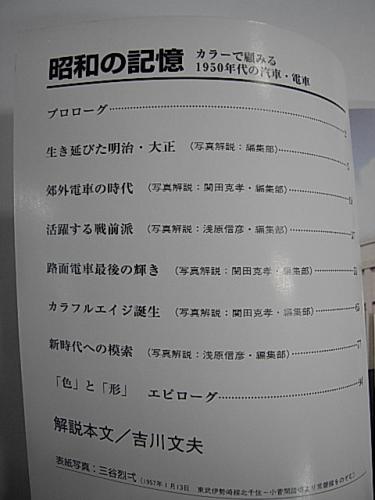 昭和の記憶 カラーで顧みる
1950年代の汽車・電車
プロローグ
生き延びた明治・大正 (写真解説:編集部)
郊外電車の時代 (写真解説:関田克孝・編集部)
活躍する戦前派 (写真解説:浅原信彦・編集部)
路面電車最後の輝き (写真解説:関田克孝・編集部)
カラフルエイジ誕生 (写真解説:関田克孝・編集部)
新時代への模索 (写真解説:浅原信彦・編集部)
「色」と「形」 エピローグ
解説本文/吉川文夫
表紙写真:三谷烈弌 (1957年1月13日 東武伊勢崎線北千住−小菅間